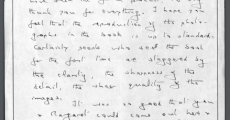 thank you for everything. I hope you
feel that the reproduction of the photo-
graphs in the book is up to standard.
Certainly people who see the book
for the first time are staggered by
the clarity, the sharpness of the
detail, the sheer quality of the
images.
It was so good that you
& Margaret could come out here